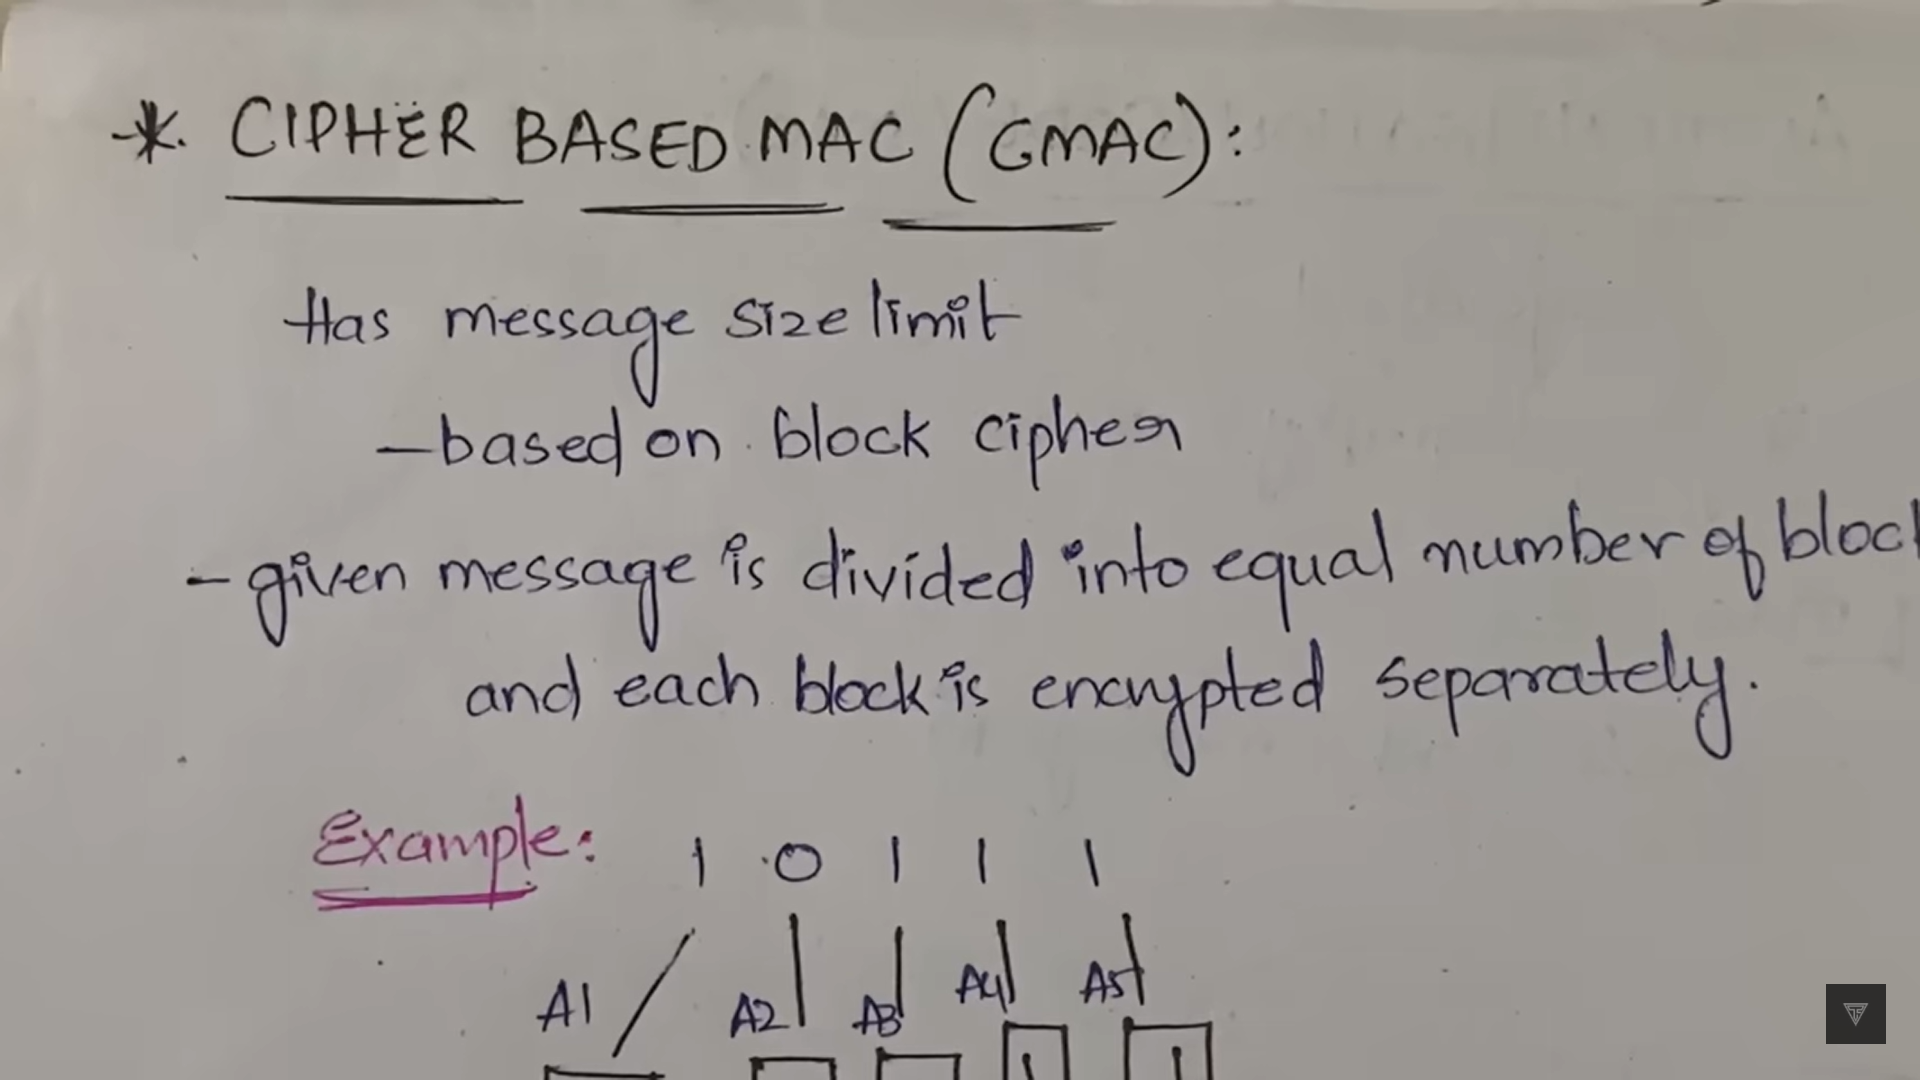 * CIPHER BASED MAC (CMAC):
Has message size limit
- based on block cipher
- given message is divided into equal number of block
and each block is encrypted separately.
Example: 1 0 1 1 1
A1 A2 A3 A4 A5
1 1